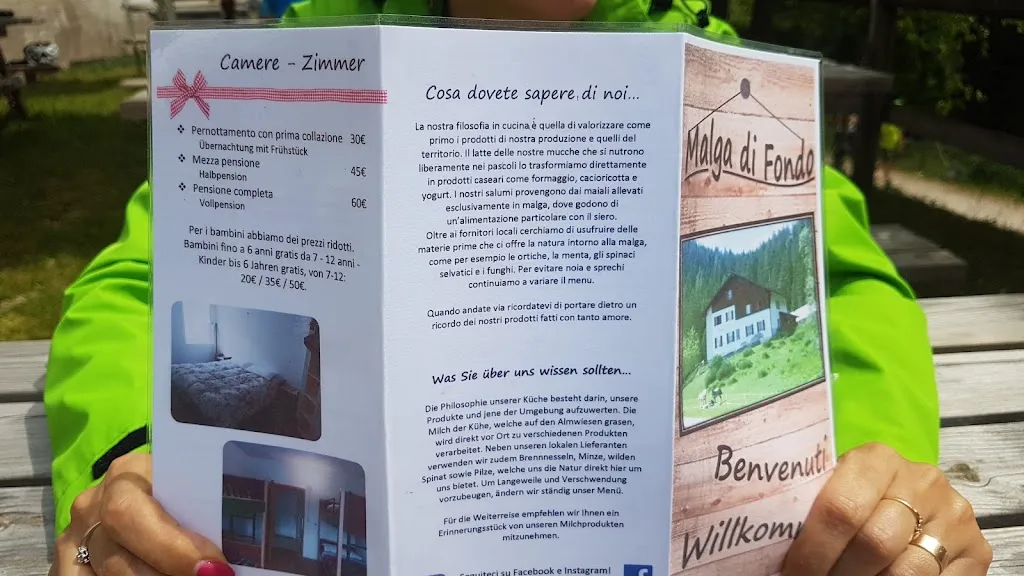 Camere - Zimmer
Pernottamento con prima collazione 30€
Übernachtung mit Frühstück
Mezza pensione 45€
Halbpension
Pensione completa 60€
Vollpension
Per i bambini abbiamo dei prezzi ridotti.
Bambini fino a 6 anni gratis da 7 - 12 anni -
Kinder bis 6 Jahren gratis, von 7-12:
20€ / 35€ / 50€.
Cosa dovete sapere di noi...
La nostra filosofia in cucina è quella di valorizzare come
primo i prodotti di nostra produzione e quelli del
territorio. Il latte delle nostre mucche che si nutrono
liberamente nei pascoli lo trasformiamo direttamente
in prodotti caseari come formaggio, cacioricotta e
yogurt. I nostri salumi provengono dai maiali allevati
esclusivamente in malga, dove godono di
un'alimentazione particolare con il siero.
Oltre ai fornitori locali cerchiamo di usufruire delle
materie prime che ci offre la natura intorno alla malga,
come per esempio le ortiche, la menta, gli spinaci
selvatici e i funghi. Per evitare noia e sprechi
continuiamo a variare il menu.
Quando andate via ricordatevi di portare dietro un
ricordo dei nostri prodotti fatti con tanto amore.
Was Sie über uns wissen sollten...
Die Philosophie unserer Küche besteht darin, unsere
Produkte und jene der Umgebung aufzuwerten. Die
Milch der Kühe, welche auf den Almwiesen grasen,
wird direkt vor Ort zu verschiedenen Produkten
verarbeitet. Neben unseren lokalen Lieferanten
verwenden wir zudem Brennnesseln, Minze, wilden
Spinat sowie Pilze, welche uns die Natur direkt hier um
uns bietet. Um Langeweile und Verschwendung
vorzubeugen, ändern wir ständig unser Menü.
Für die Weiterreise empfehlen wir Ihnen ein
Erinnerungsstück von unseren Milchprodukten
mitzunehmen.
Seguiteci su Facebook e Instagram!
Malga di Fondo
Benvenuti
Willkom